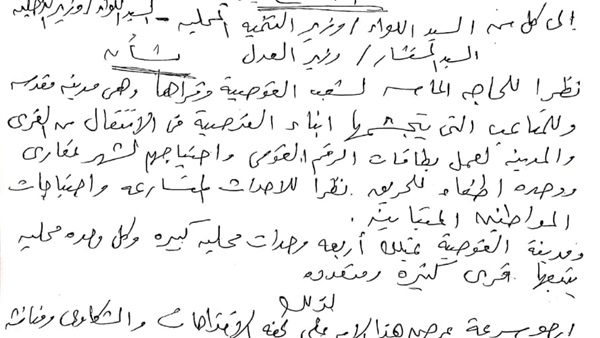 إلى كل من السيد اللواء / وزير التنمية المحليه - السيد اللواء / وزير الداخليه
السيد المستشار / وزير العدل بشأن
نظرا للحاجه الماسه لشعب القوصية وقراها وهى مدينه مقدسه
وللمتاعب التى يتجشمها ابناء القوصية من الانتقال من القرى
والمدينه لعمل بطاقات الرقم القومى واحتياجهم لشهر عقارى
ووحده اطفاء للحريق نظرا للاحداث المتسارعه واحتياجات
المواطنين المتباينه .
ومدينة القوصية تمتلك أربعه وحدات محليه كبيره وكل وحده محليه
يتبعها قرى كثيرة ومتعدده
لذلك
ارجو سرعة عرض هذا الامر على لجنه الاقتراحات والشكاوى ومناقشته